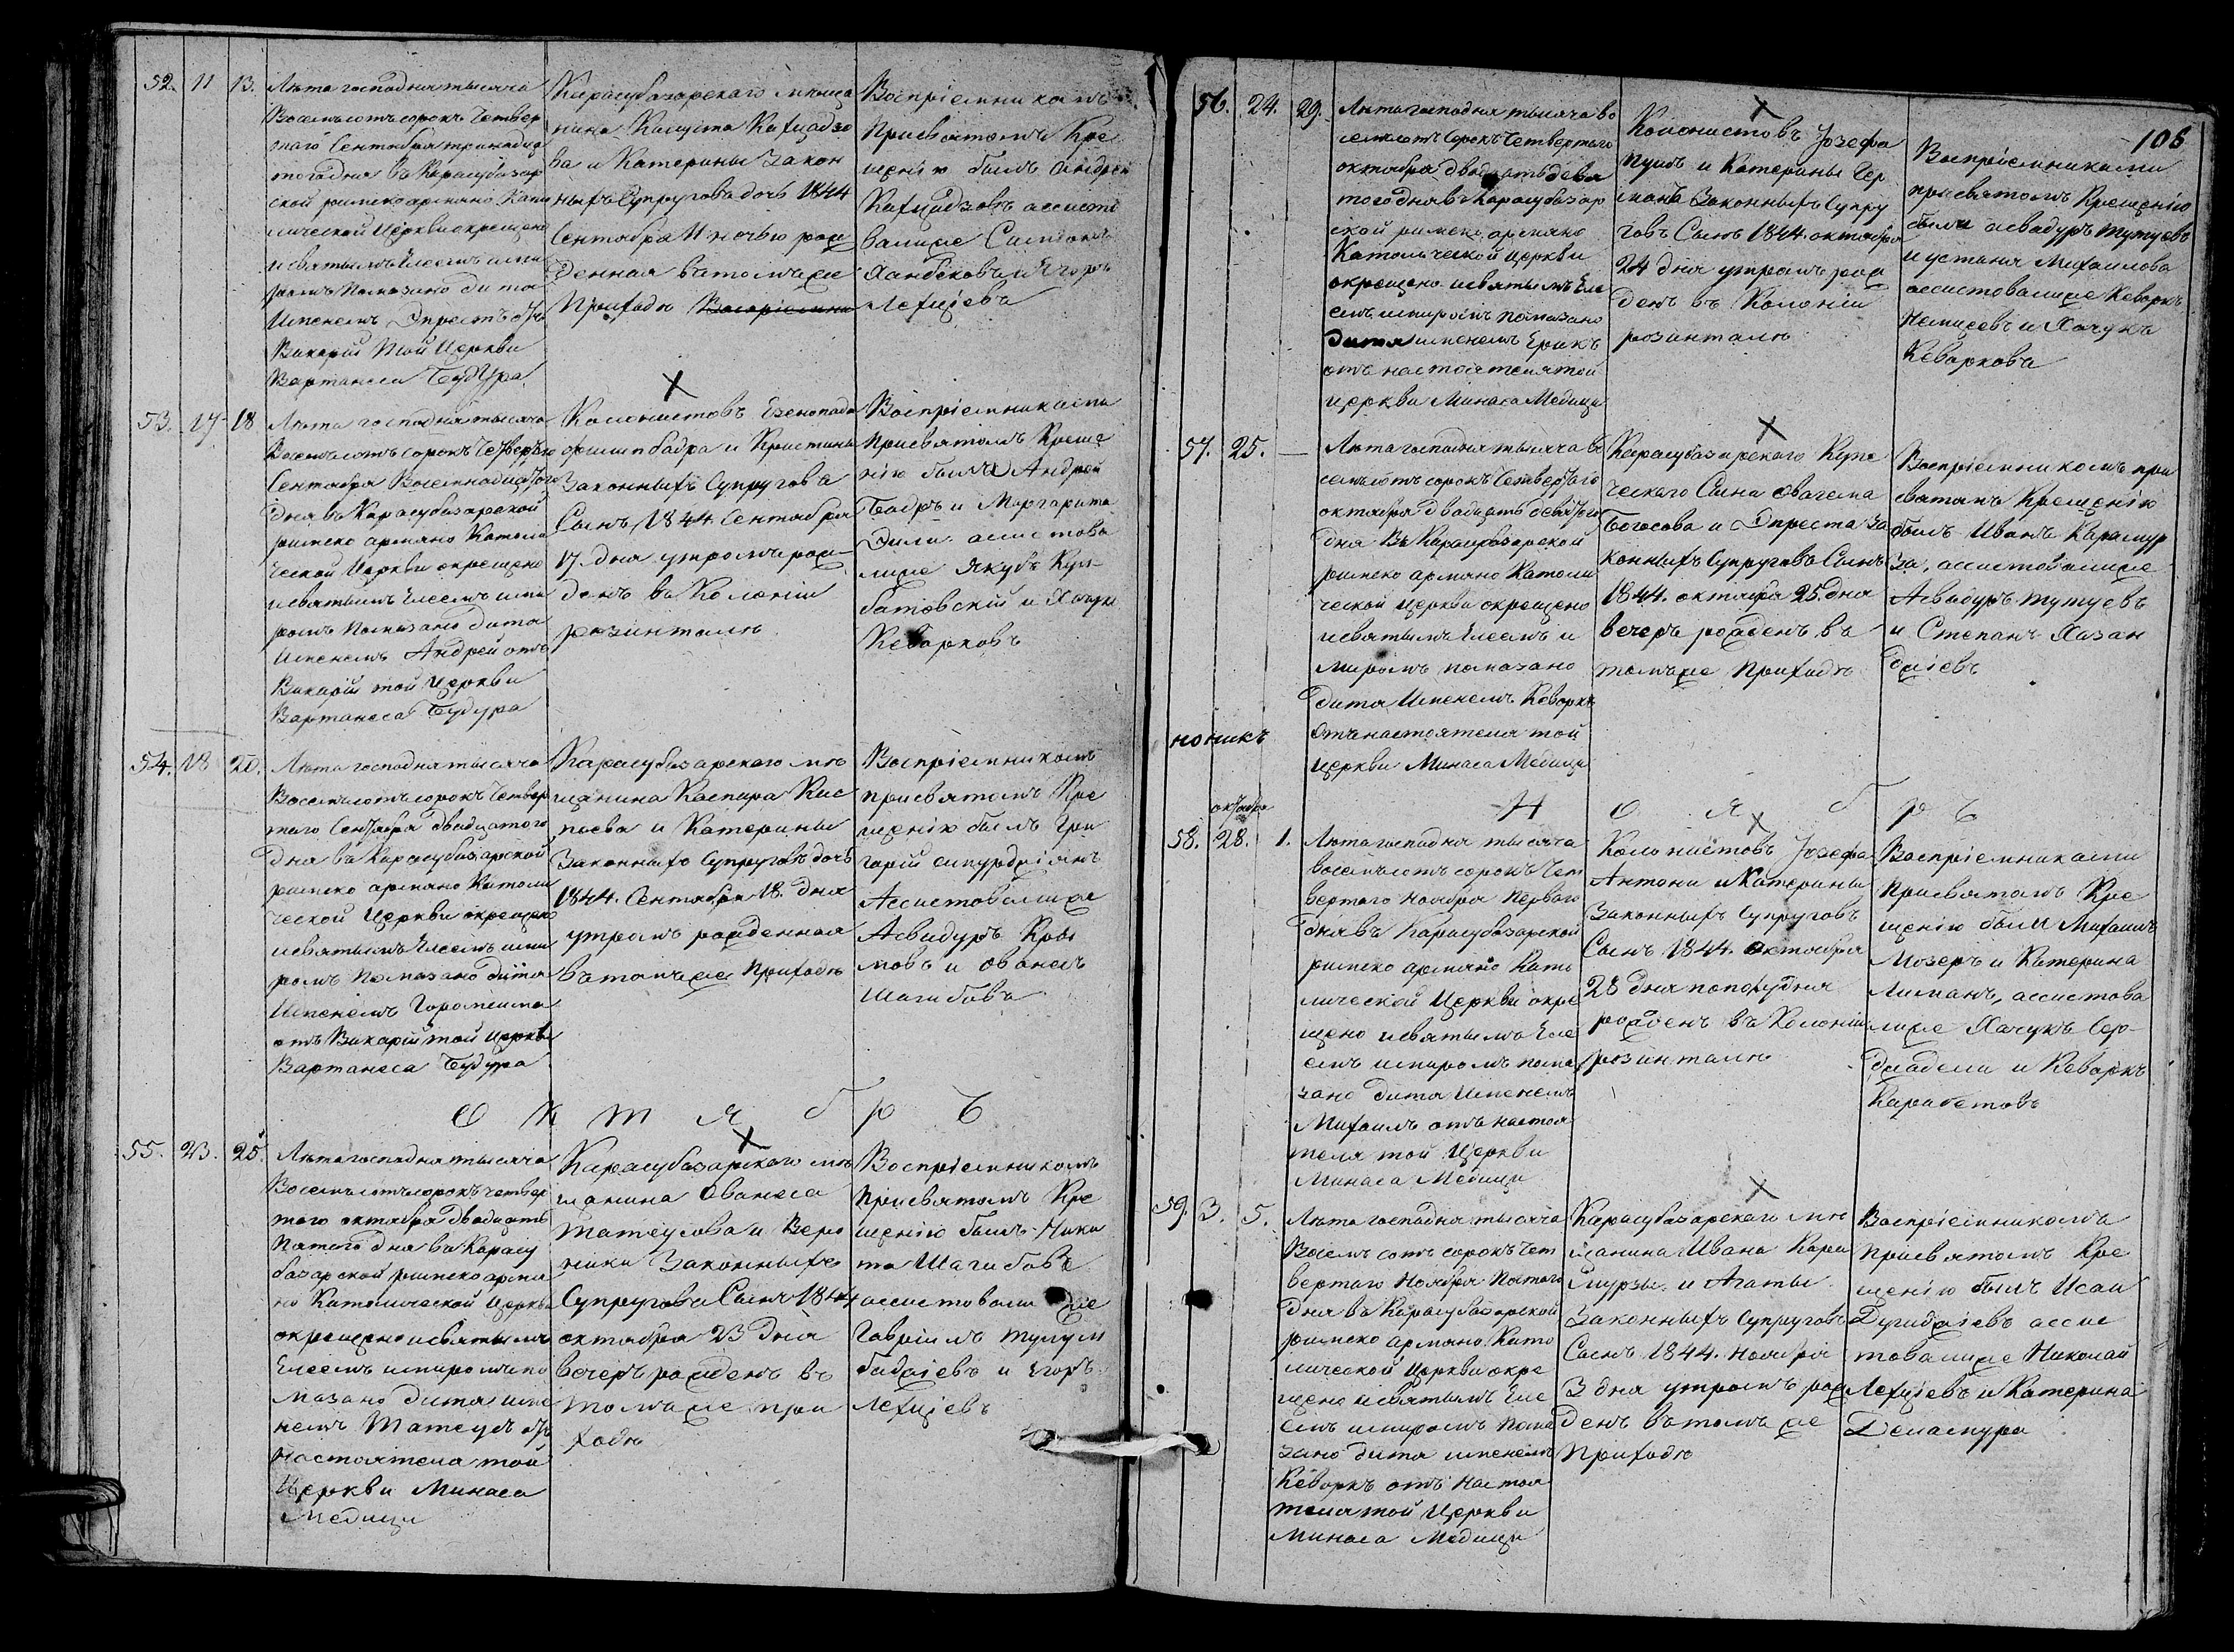 52. 11 13.
Лѣта господня тысяча
Восемьсотъ сорокъ Четвер
таго Сентября тринадца
тогодня въ Карасубазар
ской римско армяно Като
лической Церкви окрещено
и святымъ Елеемъ и ми
ромъ помазано дитя
Именемъ Эпрестъ отъ
Викарій той Церкви
Вартанеса Будура
Карасубазарскаго мѣща
нина
и Катерины Закон
ныхъ Супруговъ дочь 1844
Сентября 11 ночью рож
денная въ томъ же
Приходѣ Воспріемни
Воспріемникомъ
При святомъ Кре
щенію былъ Андрей
ассисто
валиже Симеонъ
Ханбековъ и Егоръ
Лехціевъ
53. 17 18
Лѣта господня тысяча
Восемьсотъ сорокъ Четвертаго
Сентября Восемнадцатого
дня въ Карасубазарской
римско армяно Католи
ческой Церкви окрещено
и святымъ Елеемъ и ми
ромъ помазано дитя
Именемъ Андрей отъ
Викарій той Церкви
Вартанеса Будура
Колонистовъ
и Кристины
Законныхъ Супруговъ
Сынъ, 1844 Сентября
17 дня утромъ рож-
денъ въ Колоніи
розинталю
Воспріемниками
При святомъ Креще
нію были Андрей
Бадръ и Маргарита
ассистова
лиже Якубъ Кул-
батовскій и
Кеворковъ
54. 18 20.
Лѣта господня тысяча
Восемьсотъ сорокъ Четвер
таго Сентября двадцатого
дня въ Карасубазарской
римско армяно Католи
ческой Церкви окрещено
и святымъ Елеемъ и ми
ромъ помазано дитя
Именемъ
отъ Викарій той Церкви
Вартанеса Будура
Карасубазарскаго мѣ
щанина Каспара Кис
и Катерины
Законныхъ Супруговъ дочь
1844. Сентября 18. дня
утромъ рожденная
въ томъ же Приходѣ
Воспріемникомъ
при святомъ Кре
щенію былъ Гри
горій
Ассистовалиже
Асвадуръ
и Ованесъ
Шагибовъ
О к т я б р ь
55. 23. 25.
Лѣта господня тысяча
Восемьсотъ сорокъ четвер
таго октября двадцать
Пятого дня въ Карасу
базарской римско армя
но Католической Церкви
окрещено и святымъ
Елеемъ и миромъ по
мазано дитя име
немъ Татеусъ отъ
Настоятеля той
Церкви Минаса
Медици
Карасубазарского мѣ
щанина Ованеса
Татеусова и Веро
ники Законныхъ
Супруговъ Сынъ 1844
октября 23 дня
вечеръ рожденъ въ
томъ же при
ходѣ
Воспріемникомъ
При святомъ Кре
щенію былъ Ники
та Шагибовъ
ассистовали же
Гавріилъ
и Егоръ
Лехціевъ
106
56. 24. 29.
Лѣта господня тысяча во
семьсотъ сорокъ Четвертаго
октября двадцать девя
тогодня въ Карасубазар
ской римско армяно
Католической Церкви
окрещено и святымъ Еле
емъ и миромъ помазано
дитя именемъ Ерикъ
отъ настоятеля той
Церкви Минаса Медици
Колонистовъ Јозефа
и Катерины Гер
манъ Законныхъ Супру
говъ Сынъ 1844. октября
24 дня утромъ рож
денъ въ Колоніи
розинталю
Воспріемниками
при святомъ Крещенію
были асвадуръ тутуевъ
и Михаилова
ассистовалиже Кеворкъ
и Хачукъ
Кеваркова
57. 25. —
Лѣта господня тысяча во
семьсотъ сорокъ Четвертаго
октября двадцать девятого
дня Въ Карасубазарской
римско армяно Католи
ческой Церкви окрещено
и святымъ Елеемъ и
миромъ помазано
дитя Именемъ Кеворкъ
Отъ настоятеля той
Церкви Минаса Медици
Карасубазарского Купе
ческаго Сына
Богосова и Эпреста За
конныхъ Супруговъ Сынъ
1844. октября 25. дня
вечеръ рожденъ въ
томъ же Приходѣ
Воспріемникомъ при
святомъ Крещенію
былъ Иванъ Карамур
за, ассистовалиже
Асвадуръ тутуевъ
и Степанъ Хазан
джіевъ
Н о я б р ь
октября
58. 28. 1.
Лѣта господня тысяча
восемьсотъ сорокъ Чет
вертаго Ноября Перваго
дня въ Карасубазарской
римско армяно Като
лической Церкви окре
щено и святымъ Еле
емъ и миромъ пома
зано дитя Именемъ
Михаилъ отъ настоя
теля той Церкви
Минаса Медици
Колонистовъ Јозефа
Антони и Катерины
Законныхъ Супруговъ
Сынъ 1844. октября
28 дня пополудня
рожденъ въ Колоніи
розинталю
Воспріемниками
При святомъ Кре
щенію были Михаилъ
Мозеръ и Катерина
Лиманъ, ассистова
лиже Хачукъ Сер-
и Кеворкъ
Карабетовъ
59. 3. 5.
Лѣта господня тысяча
Восемьсотъ сорокъ Чет
вертаго Ноября Пятого
дня въ Карасубазарской
римско армяно Като
лической Церкви окре
щено и святымъ Еле
емъ и миромъ пома
зано дитя именемъ
Кеворкъ отъ Настоя
теля той Церкви
Минаса Медици
Карасубазарского мѣ
щанина Ивана Кара
мурзы и Агаты
Законныхъ Супруговъ
Сынъ 1844. Ноября
3 дня утромъ рож
денъ въ томъ же
Приходѣ
Воспріемникомъ
При святомъ Кре
щенію былъ Исаи
асси
стовалиже Николай
Лехціевъ и Катерина